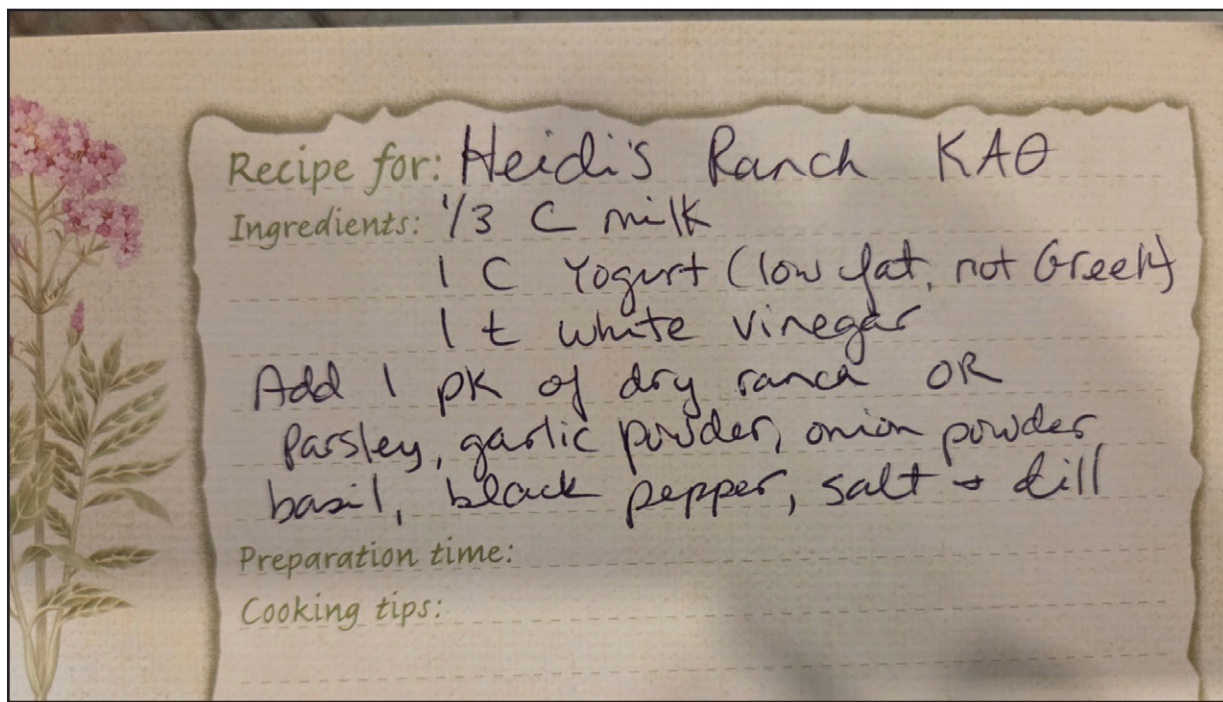 Recipe for: Heidi's Ranch KAΘ
Ingredients: 1/3 C milk
1 C Yogurt (low fat, not Greek)
1 t white vinegar
Add 1 pk of dry ranch OR
Parsley, garlic powder, onion powder,
basil, black pepper, salt + dill
Preparation time:
Cooking tips: